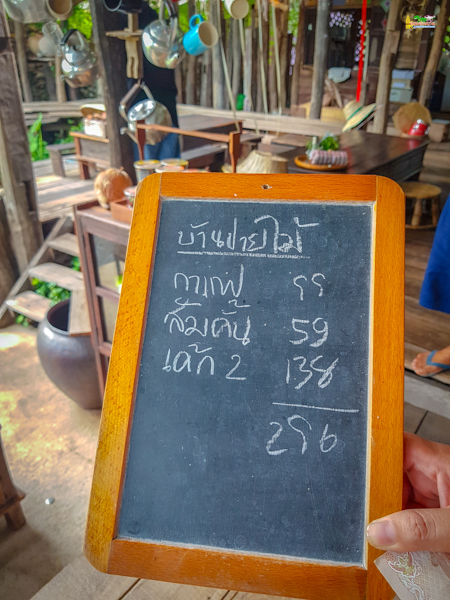 บ้านปายไม้
กาแฟ 99
ส้มคั้น 59
เค้ก 2 138
296